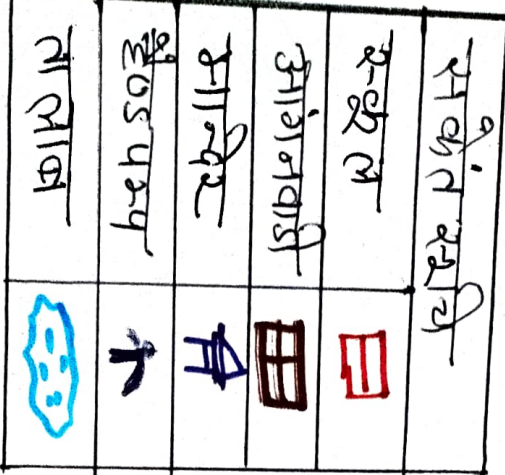 संकेत सूची
स्कूल
आंगनवाडी
मान्दिर
हैण्डपम्प
तालाब